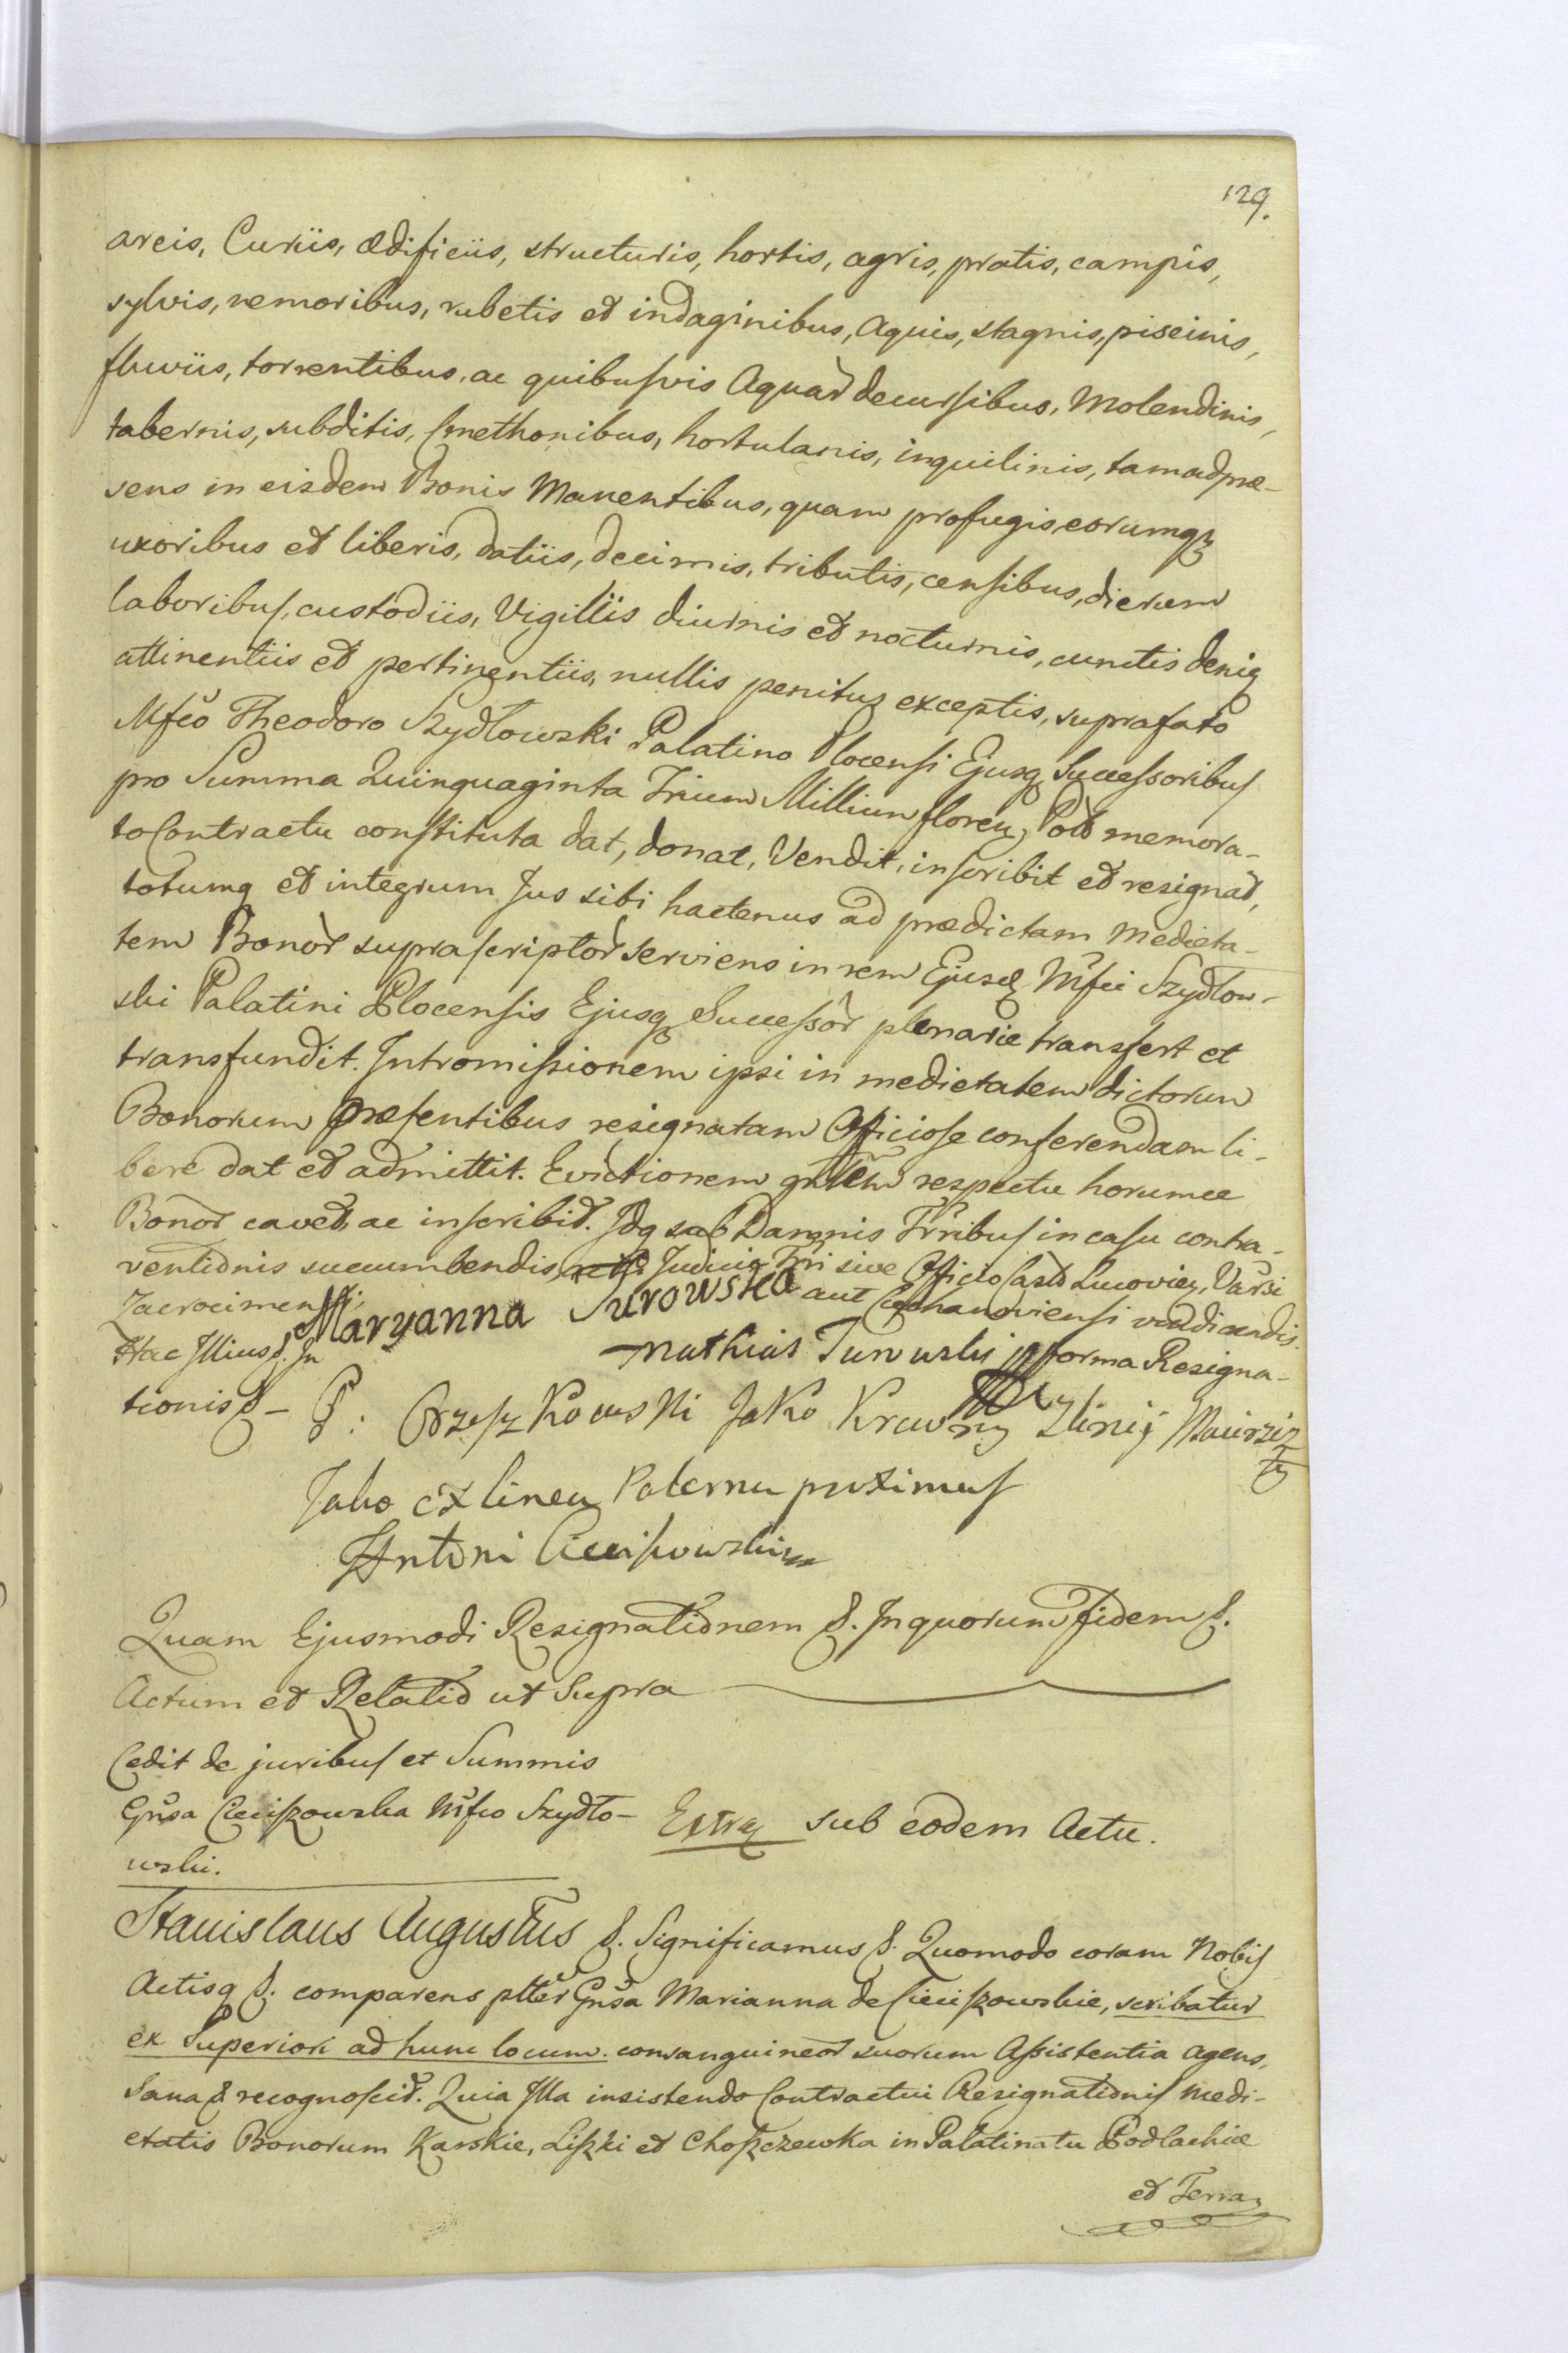 129.
areis, Curiis, ædificiis, structuris, hortis, agris, pratis, campis,
sylvis, nemoribus, rubetis et indaginibus, Aquis, stagnis, piscinis,
fluviis, torrentibus, ac quibusvis Aquar̃ decursibus, Molendinis,
tabernis, subditis, Cmethonibus, hortulanis, inquilinis, tam ad præ-
sens in eisdem Bonis Manentibus, quam profugis eorumqꝫ
uxoribus et liberis, datiis, decimis, tributis, censibus, dierum
laboribus, custodiis, Vigiliis diurnis et nocturnis, cunctis deniq
attinentiis et pertinentiis, nullis penitus exceptis, suprafato
Mfcõ Theodoro Szydłowski Palatino Plocensi Ejusq Successoribus
pro Summa Quinquaginta Trium Millium floreñ Pol̃ memora-
to Contractu constituta dat, donat, Vendit, inscribit et resignat,
totumq et integrum Jus sibi hactenus ad prædictam Medieta-
tem Bonor̃ suprascriptor̃ serviens in rem Ejusd Mfci Szydłow-
ski Palatini Plocensis Ejusq Successor̃ plenarie transfert et
transfundit. Intromissionem ipsi in medietatem dictorum
Bonorum præsentibus resignatam Officiose conferendam li-
bere dat et admittit. Evictionem gñlem respectu horumce
Bonor̃ cavet, ac inscribit. Idq sub Damnis Trr̃ribus in casu contra-
ventionis succumbendis Judicio Trri sive Officio Castr̃ Lucovieñ, Varsi
Zacrocimensi, aut Ciechanoviensi vendicandis.
Maryanna Turowska
Hac Illius &. In forma Resigna-
Mathias Turowski
tionis & -
P: Orzeszkowski Jako Krewny Zlinij Maierzis
ty
Jako ex linea Paterna proximus
Antoni Cieciszowski
Quam Ejusmodi Resignationem &. In quorum fidem &.
Actum et Relatio ut Supra
Cedit de juribus et Summis
Gñsa Cieciszowska Mfco Szydło-
wski.
Extrꝫ sub eodem Actu.
Stanislaus Augustus &. Significamus &. Quomodo coram Nobis
Actisq &. comparens pltter Gñsa Marianna de Cieciszowskie, scribatur
ex Superiori ad hunc locum. consanguineor̃ suorum Assistentia agens,
Sana & recognoscit. Quia Illa insistendo Contractui Resignationis Medi-
etatis Bonorum Karskie, Liszki et Choszczewka in Palatinatu Podlachiæ
et Terra